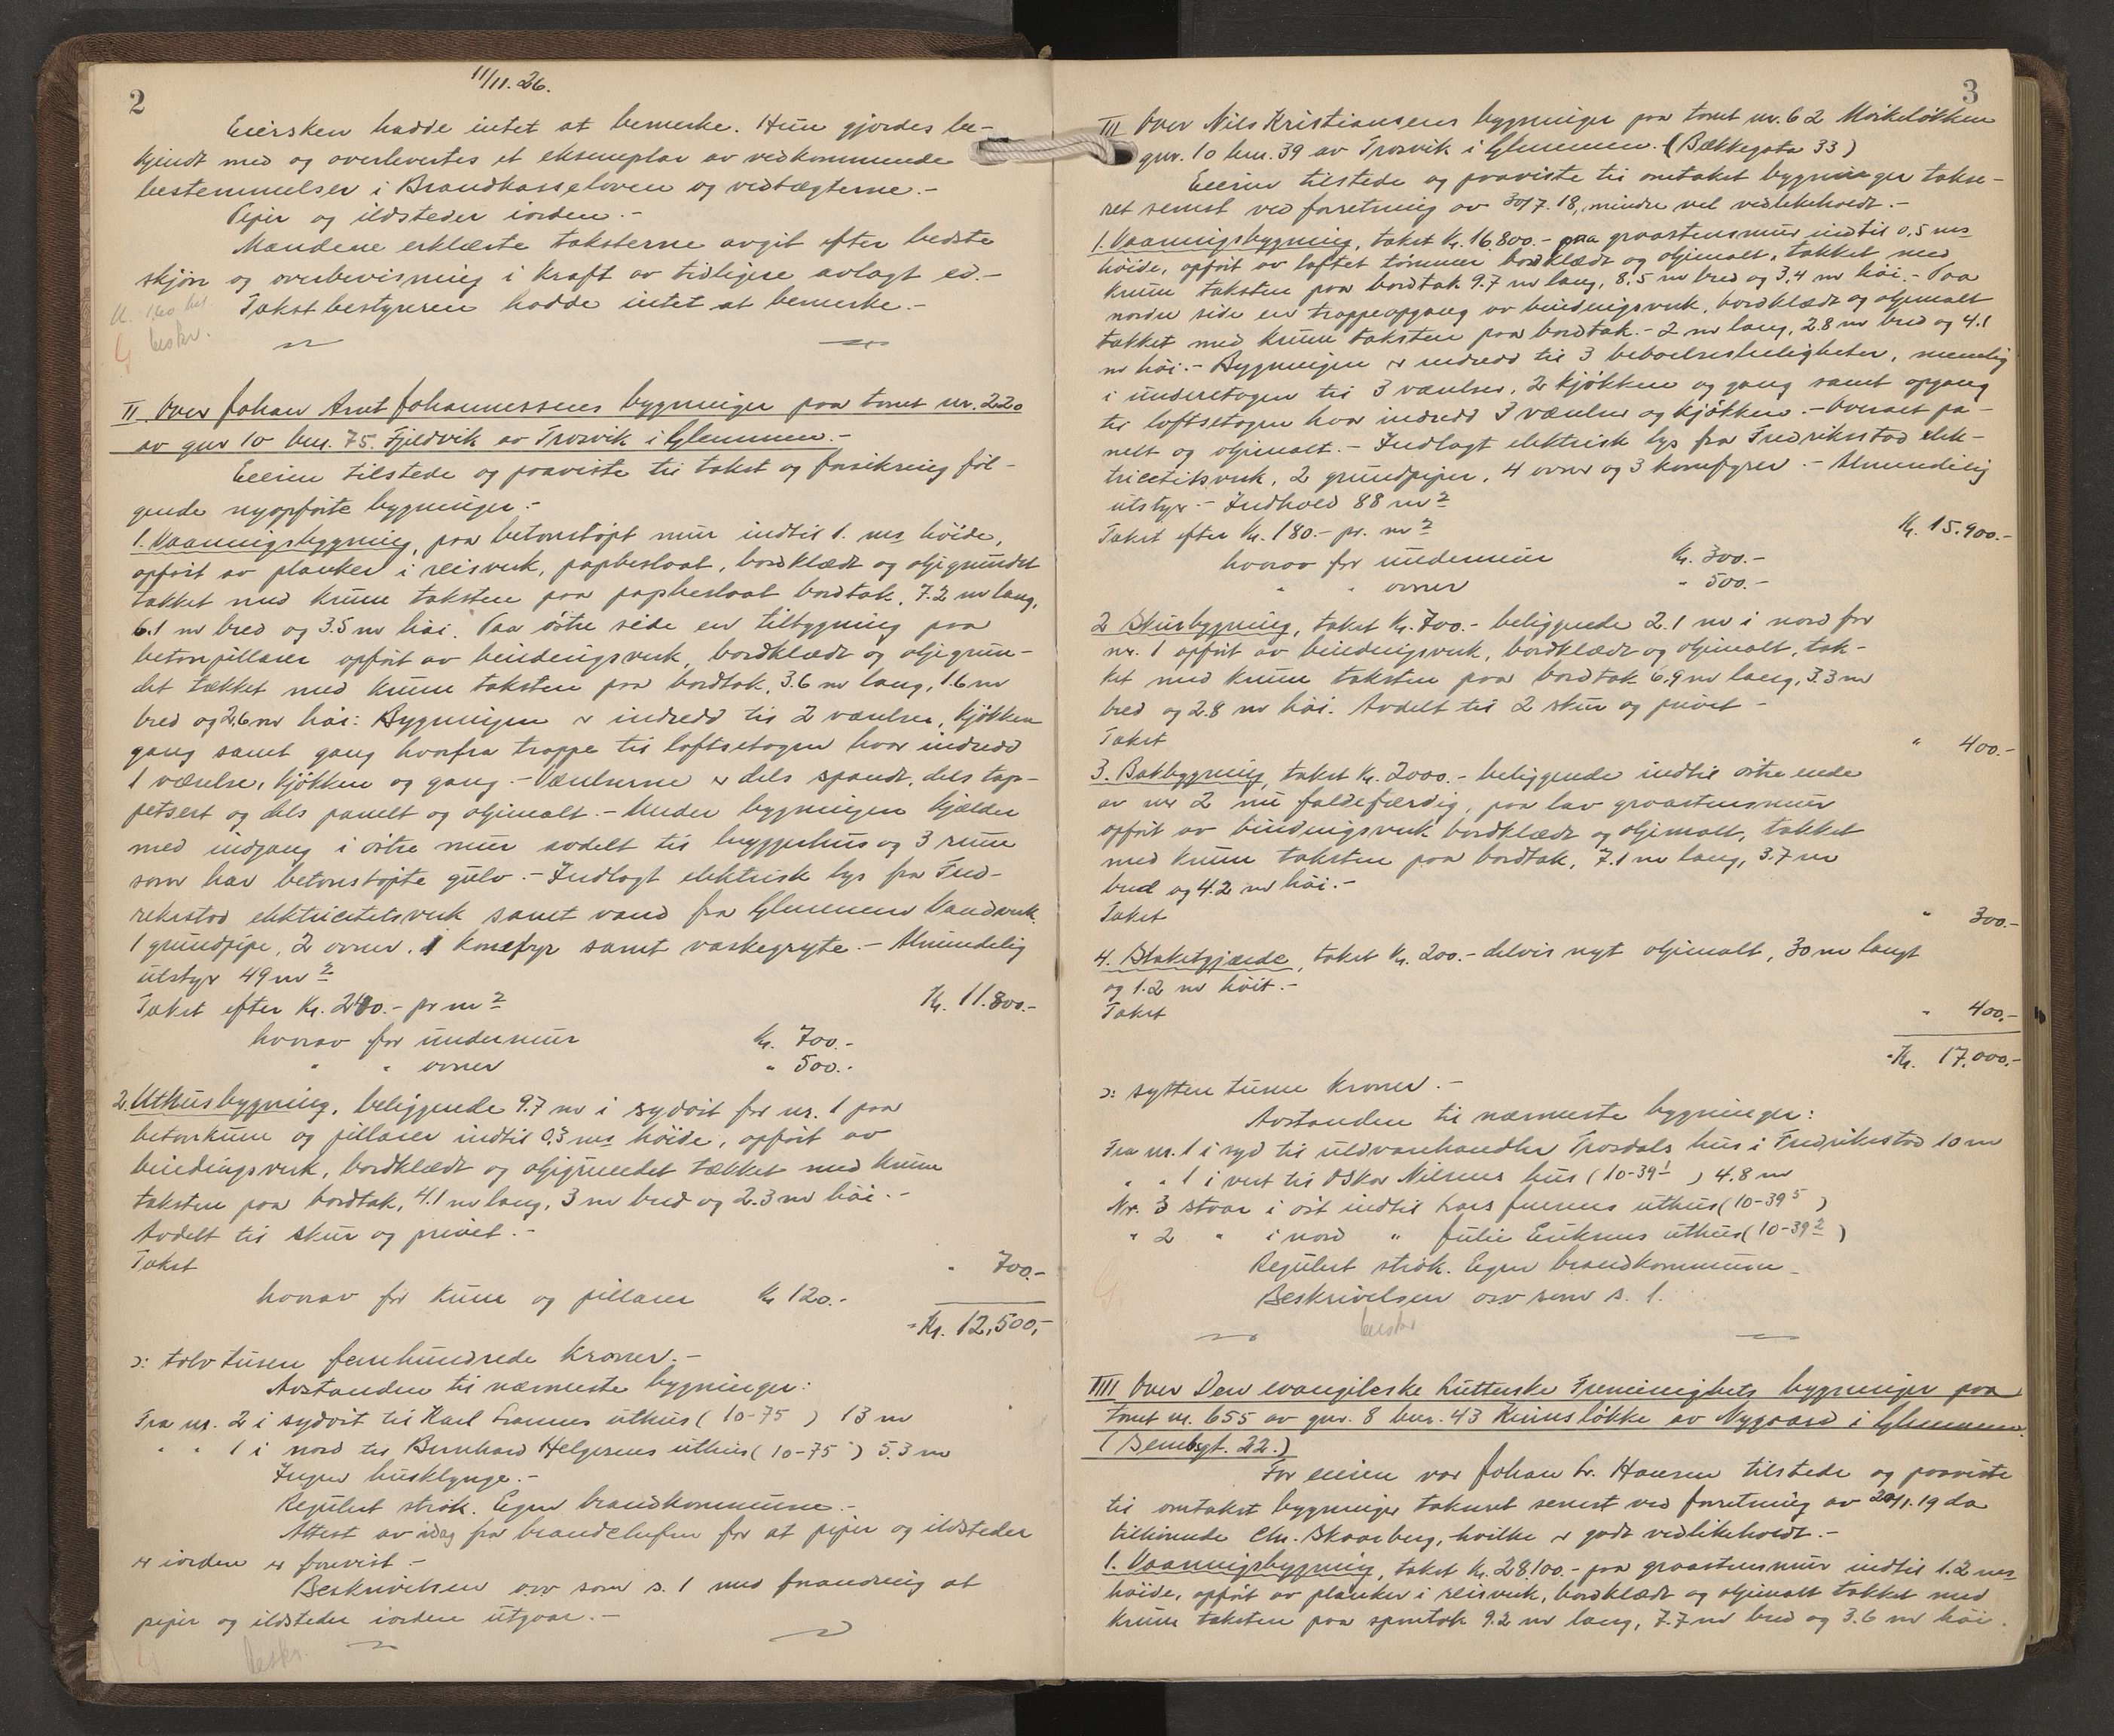 2
11/11.26.
Eiersken hadde intet at bemerke. Hun gjordes be-
kjendt med og overlevertes et eksemplar av vedkommende
bestemmelser i Brandkasseloven og vedtægterne.-
Piper og ildsteder iorden.-
Mændene erklærte taksterne avgit efter bedste
skjøn og overbevisning i kraft av tidligere avlagt ed.-
Takstbestyreren hadde intet at bemerke.-
beskr.
II. Over Johan Arnt Johannessens bygninger paa tomt nr. 220
av gnr 10 bnr. 75. Fjeldvik av Trosvik i Glemmen.-
Eieren tilstede og paaviste til takst og forsikring føl-
gende nyopførte bygninger.-
1. Vaaningsbygning, paa betonstøpt mur indtil 1. ms høide,
opført av planker i reisverk, papbeslaat, bordklædt og oljegrundet
tækket med krum taksten paa papbeslaat bordtak, 7.2 m lang,
6.1 m bred og 3.5 m høi. Paa østre side en tilbygning paa
betonpillarer opført av bindingsverk, bordklædt og oljegrun-
det tækket med krum taksten paa bordtak, 3.6 m lang, 1.6 m
bred og 2.6 m høi. Bygningen er indredd til 2 værelser, kjøkken
gang samt gang hvorfra trappe til loftsetagen hvor indredd
1 værelse, kjøkken og gang.- Værelserne er dels spændt, dels tap-
petsert og dels panelt og oljemalt.- Under bygningen kjælder
med indgang i østre mur avdelt til bryggerhus og 3 rum
som har betonstøpte gulv.- Indlagt elektrisk lys fra Fred-
rikstad elektricitetsverk samt vand fra Glemmen Vandverk.
1 grundpipe, 2 ovner, 1 komfyr samt vaskegryte.- Almindelig
utstyr 49 m2
Takst efter Kr. 240.- pr m2 Kr. 11.800.-
hvorav for undermur Kr. 700.-
" " ovner " 500.-
2. Uthusbygning, beliggende 9.7 m i sydøst for nr. 1 paa
betonkum og pillarer indtil 0,3 ms høide, opført av
bindingsverk, bordklædt og oljegrundet tækket med krum
taksten paa bordtak, 4.1 m lang, 3 m bred og 2.3 m høi.-
Avdelt til skur og privet.-
Takst " 700.-
hvorav for kum og pillarer Kr 120.-
Kr. 12,500,-
ɔ: tolv tusen femhundrede kroner.-
Avstanden til nærmeste bygninger:
Fra nr. 2 i sydøst til Karl Larsens uthus (10-75 ) 13 m
" " 1 i nord til Bernhard Helgesens uthus (10-75 ) 5.3 m
Ingen husklynge.-
Regulert strøk. Egen brandkommune.-
Attest av idag fra brandchefen for at piper og ildsteder
er iorden er forevist.-
Beskrivelsen osv som s. 1 med forandring at
piper og ildsteder iorden utgaar.-
beskr.
3
III Over Nils Kristiansens bygninger paa tomt nr. 62 Mørkeløkken
gnr. 10 bnr. 39 av Trosvik i Glemmen. (Bækkegata 33)
Eieren tilstede og paaviste til omtakst bygninger takse-
ret senest ved forretning av 30/7.18, mindre vel vedlikeholdt.-
1. Vaaningsbygning, takst Kr. 16.800.- paa graastensmur indtil 0,5 ms
høide, opført av laftet tømmer bordklædt og oljemalt, tækket med
krum taksten paa bordtak 9.7 m lang, 8,5 m bred og 3,4 m høi.- Paa
nordre side en trappeopgang av bindingsverk, bordklædt og oljemalt
tækket med krum taksten paa bordtak.- 2 m lang, 2.8 m bred og 4.1
m høi.- Bygningen er indredd til 3 beboelsesleiligheter, nemlig
i underetagen til 3 værelser, 2 kjøkken og gang samt opgang
til loftsetagen hvor indredd 3 værelser og kjøkken.- Overalt pa-
nelt og oljemalt.- Indlagt elektrisk lys fra Fredriksstad elek-
tricitetsverk, 2 grundpiper, 4 ovner og 3 komfyrer.- Almindelig
utstyr.- Indhold 88 m2
Takst efter Kr. 180.- pr. m2 Kr. 15.900.-
hvorav for undermur Kr. 300.-
" " ovner " 500.-
2 Skursbygning, takst Kr. 700.- beliggende 2.1 m i nord for
nr. 1 opført av bindingsverk, bordklædt og oljemalt, tæk-
ket med krum taksten paa bordtak 6,9 m lang, 3.3 m
bred og 2.8 m høi. Avdelt til 2 skur og privet-
Takst " 400.-
3. Bakbygning, takst Kr. 2000.- beliggende indtil østre ende
av nr 2 nu faldefærdig, paa lav graastensmur
opført av bindingsverk bordklædt og oljemalt, tækket
med krum taksten paa bordtak, 7.1 m lang, 3.7 m
bred og 4.2 m høi.-
Takst " 300.-
4. Stakitgjærde, takst Kr. 200.- delvis nyt oljemalt, 30 m langt
og 1.2 m høit.-
Takst " 400.-
Kr. 17,000,-
ɔ: sytten tusen kroner.-
Avstanden til nærmeste bygninger:
Fra nr. 1 i syd til uldvarehandler Trosdals hus i Fredrikstad 10 m
" " 1 i vest til Oskar Nilsens hus (10-39 1 ) 4.8 m
Nr. 3 staar i øst indtil Lars Jensens uthus (10-39 5 )
" 2 " i nord " Julie Eriksens uthus (10-39 2 )
Regulert strøk. Egen brandkommune-
Beskrivelsen osv som s. 1.
beskr
IIII Over Den evangeliske lutterske Fremenighets bygninger paa
tomt nr. 655 av gnr. 8 bnr. 43 av Nygaard i Glemmen.
22.)
For eieren var Johan Hansen tilstede og paaviste
til omtakst bygninger taksert senest ved forretning av 20/1.19 da
tilhørende Chr. Skaarberg, hvilke er godt vedlikeholdt.-
1. Vaaningsbygning, takst Kr. 28.100.- paa graastensmur indtil 1.2 ms
høide, opført av planker i reisverk, bordklædt og oljemalt tækket med
krum taksten paa sponetak 9.2 m lang, 7.7 m bred og 3.6 m høi.